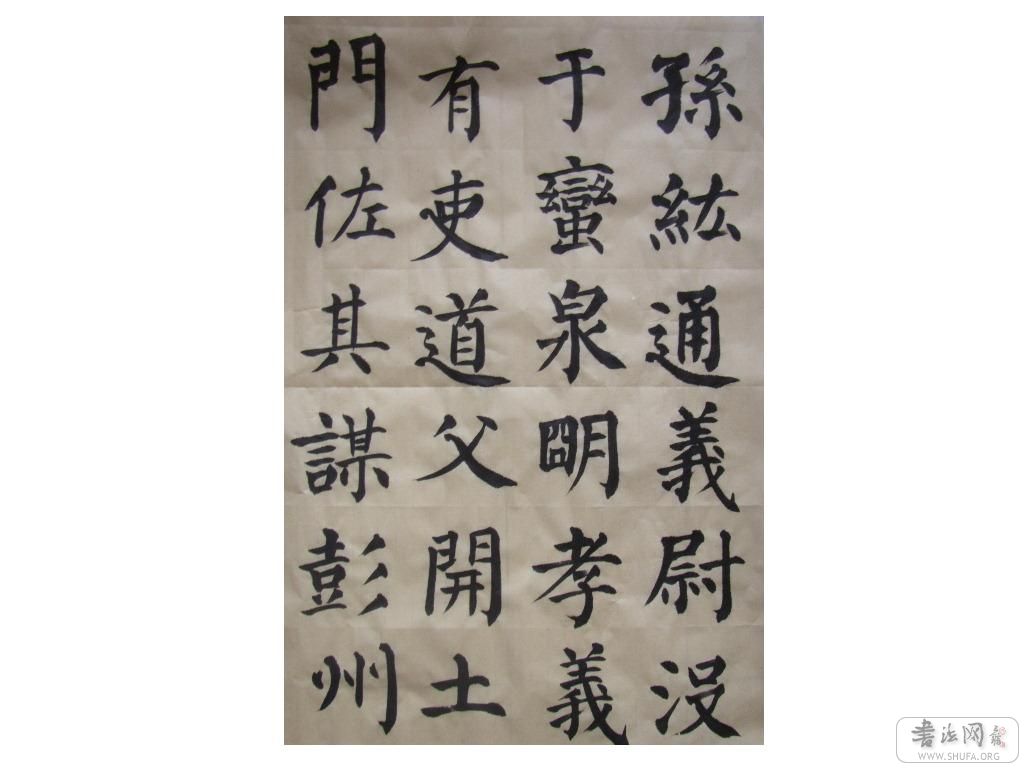 孫紘通義尉没
于蠻泉明孝義
有吏道父開土
門佐其謀彭州
書法网
WWW.SHUFA.ORG